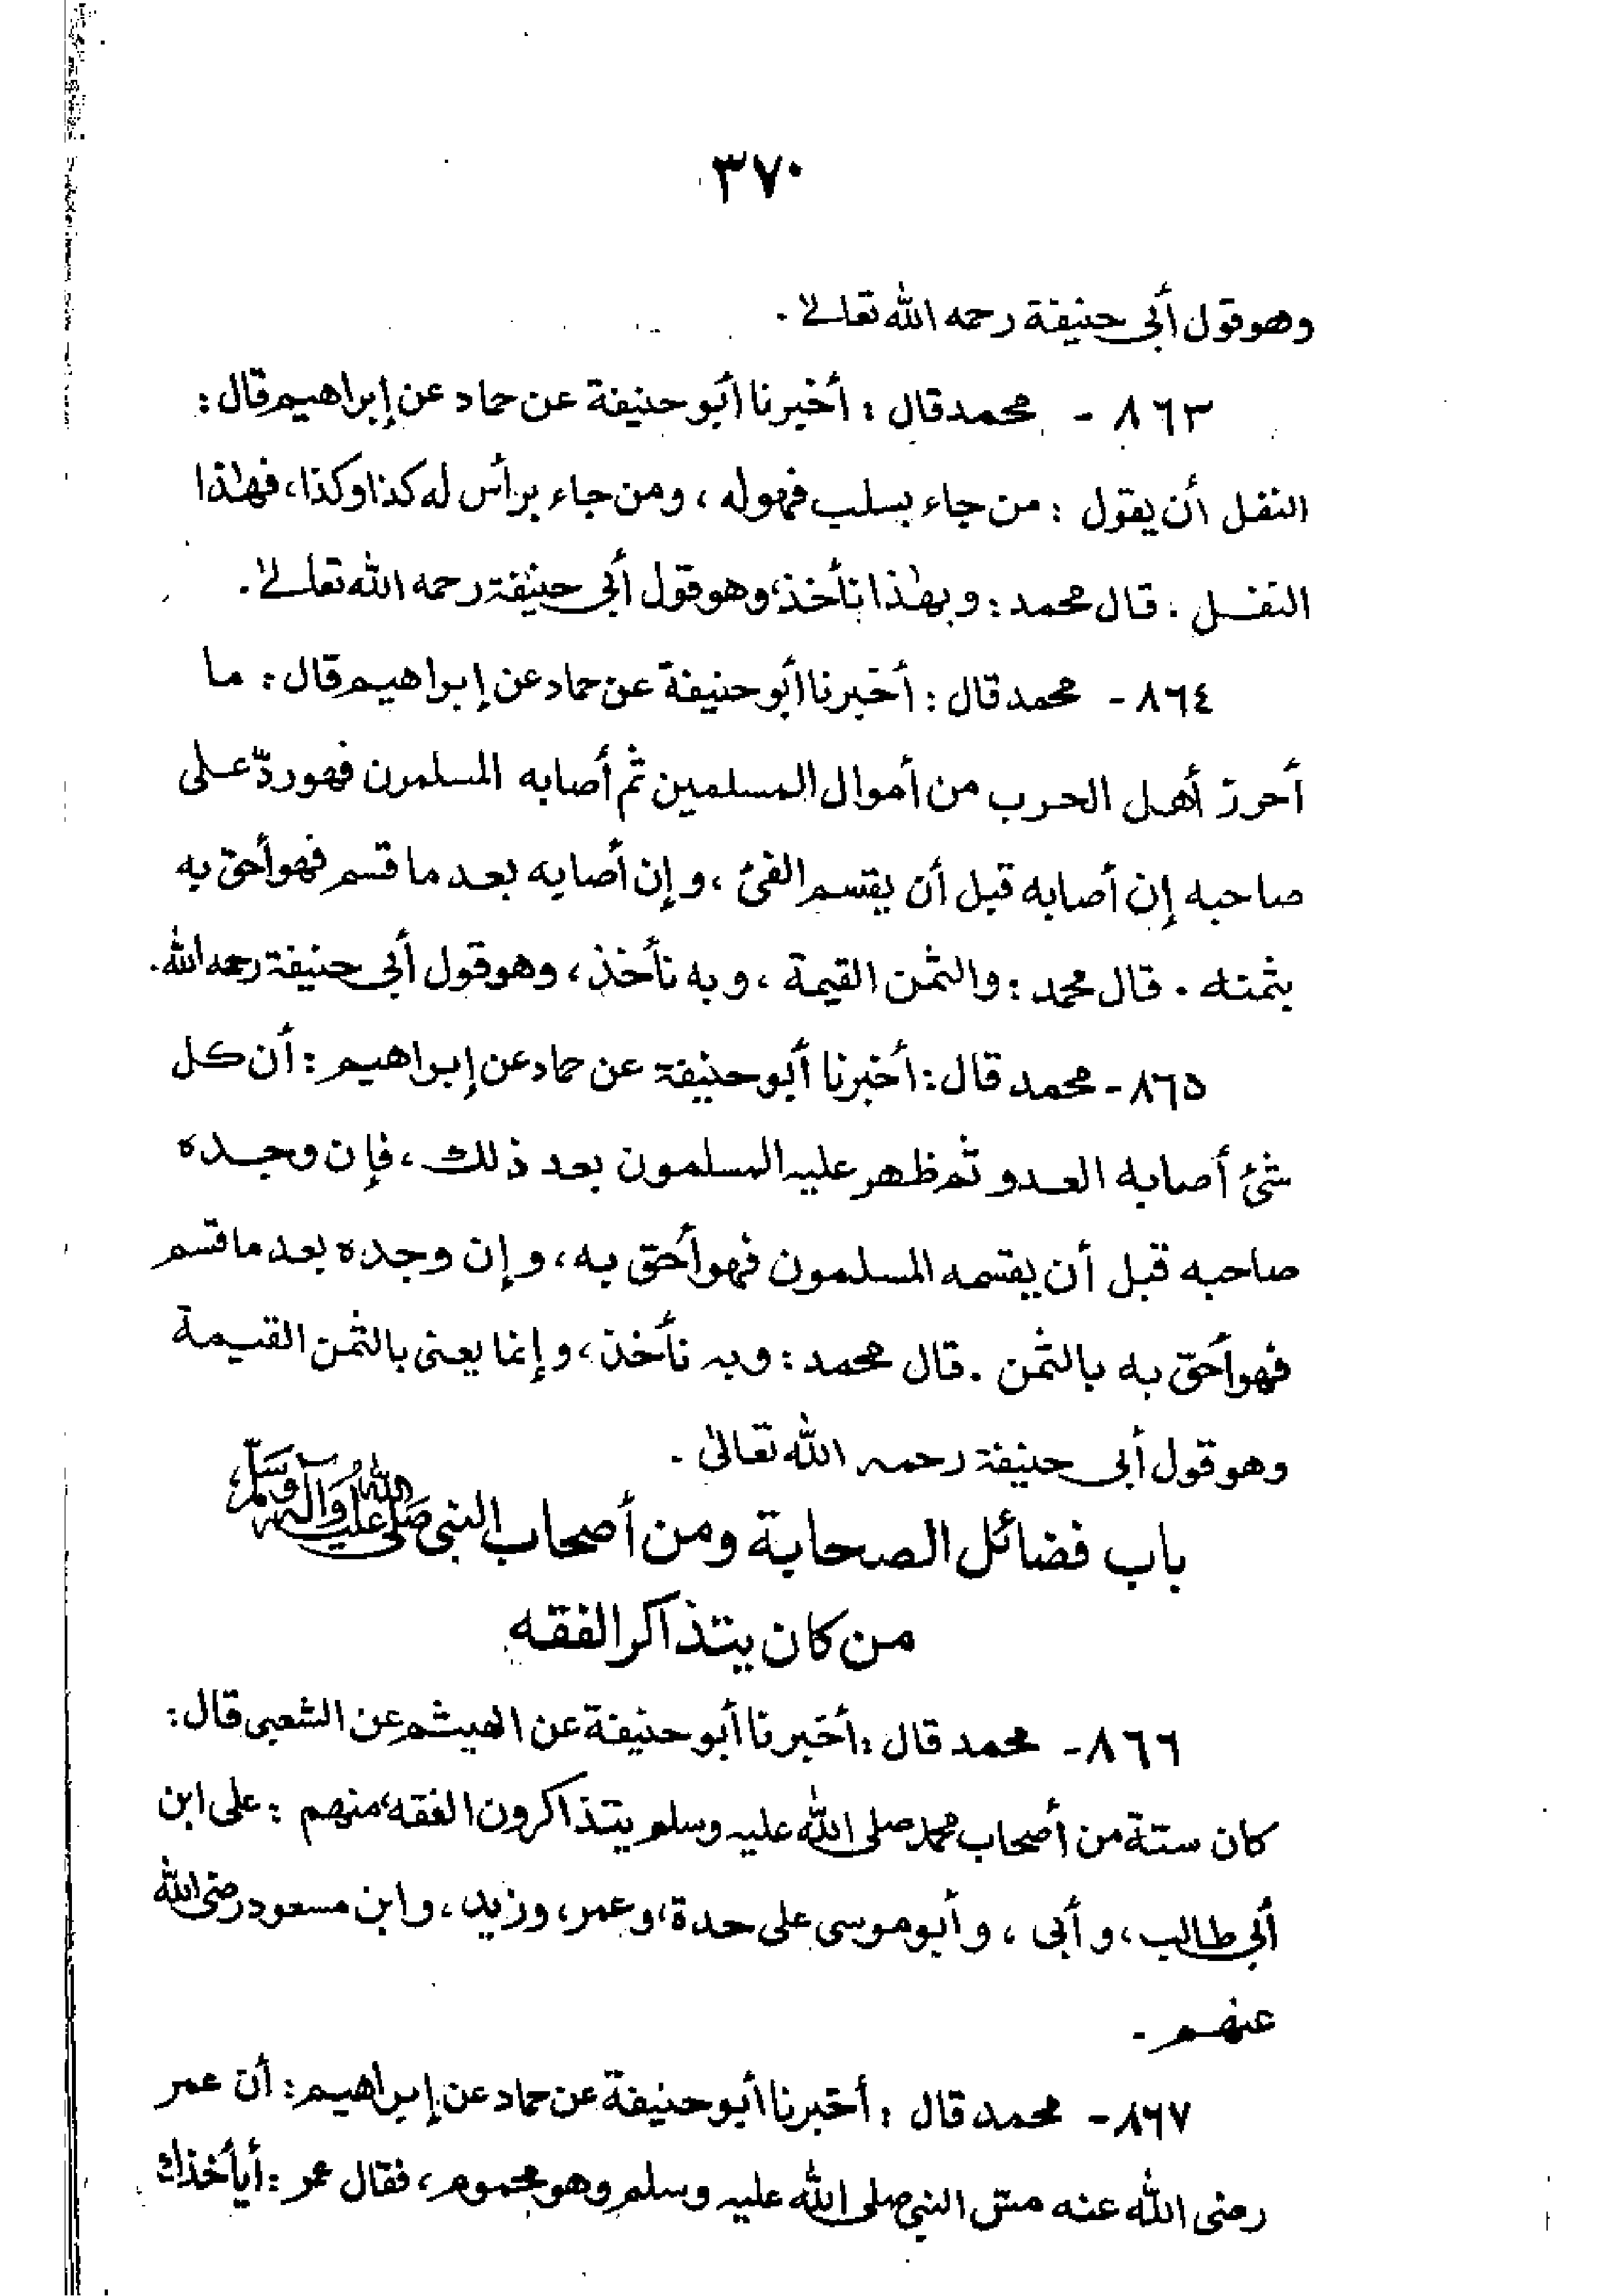 ٣٧٠
وهو قول أبى حنيفة رحمه الله تعالى .
٨٦٣ - محمد قال : أخبرنا أبو حنيفة عن حماد عن إبراهيم قال :
النفل أن يقول : من جاء بسلب فهو له ، ومن جاء برأس له كذا وكذا ، فهذا
النفل . قال محمد : وبهذا نأخذ، وهو قول أبى حنيفة رحمه الله تعالى .
٨٦٤ - محمد قال : أخبرنا أبو حنيفة عن حماد عن إبراهيم قال : ما
أحرز أهل الحرب من أموال المسلمين ثم أصابه المسلمون فهو ردّ على
صاحبه إن أصابه قبل أن يقتسم الفئ ، وإن أصابه بعد ما قسم فهو أحق به
بثمنه . قال محمد : والثمن القيمة ، وبه نأخذ ، وهو قول أبى حنيفة رحمه الله .
٨٦٥ - محمد قال : أخبرنا أبو حنيفة عن حماد عن إبراهيم : أن كل
شئ أصابه العدو ثم ظهر عليه المسلمون بعد ذلك ، فإن وجده
صاحبه قبل أن يقتسمه المسلمون فهو أحق به ، وإن وجده بعد ما قسم
فهو أحقّ به بالثمن . قال محمد : وبه نأخذ ، وإنما يعنى بالثمن القيمة
وهو قول أبى حنيفة رحمه الله تعالى .
باب فضائل الصحابة ومن أصحاب النبى صلى الله عليه وآله وسلم
من كان يتذاكر الفقه
٨٦٦ - محمد قال : أخبرنا أبو حنيفة عن الهيثم عن الشعبى قال :
كان ستة من أصحاب محمد صلى الله عليه وسلم يتذاكرون الفقه، منهم : على ابن
أبى طالب ، وأبى ، وأبو موسى على حدة، وعمر ، وزيد ، وابن مسعود رضى الله
عنهم -
٨٦٧ - محمد قال : أخبرنا أبو حنيفة عن حماد عن إبراهيم : أن عمر
رضى الله عنه مسّ النبى صلى الله عليه وسلم وهو محموم ، فقال عمر : أيأخذك